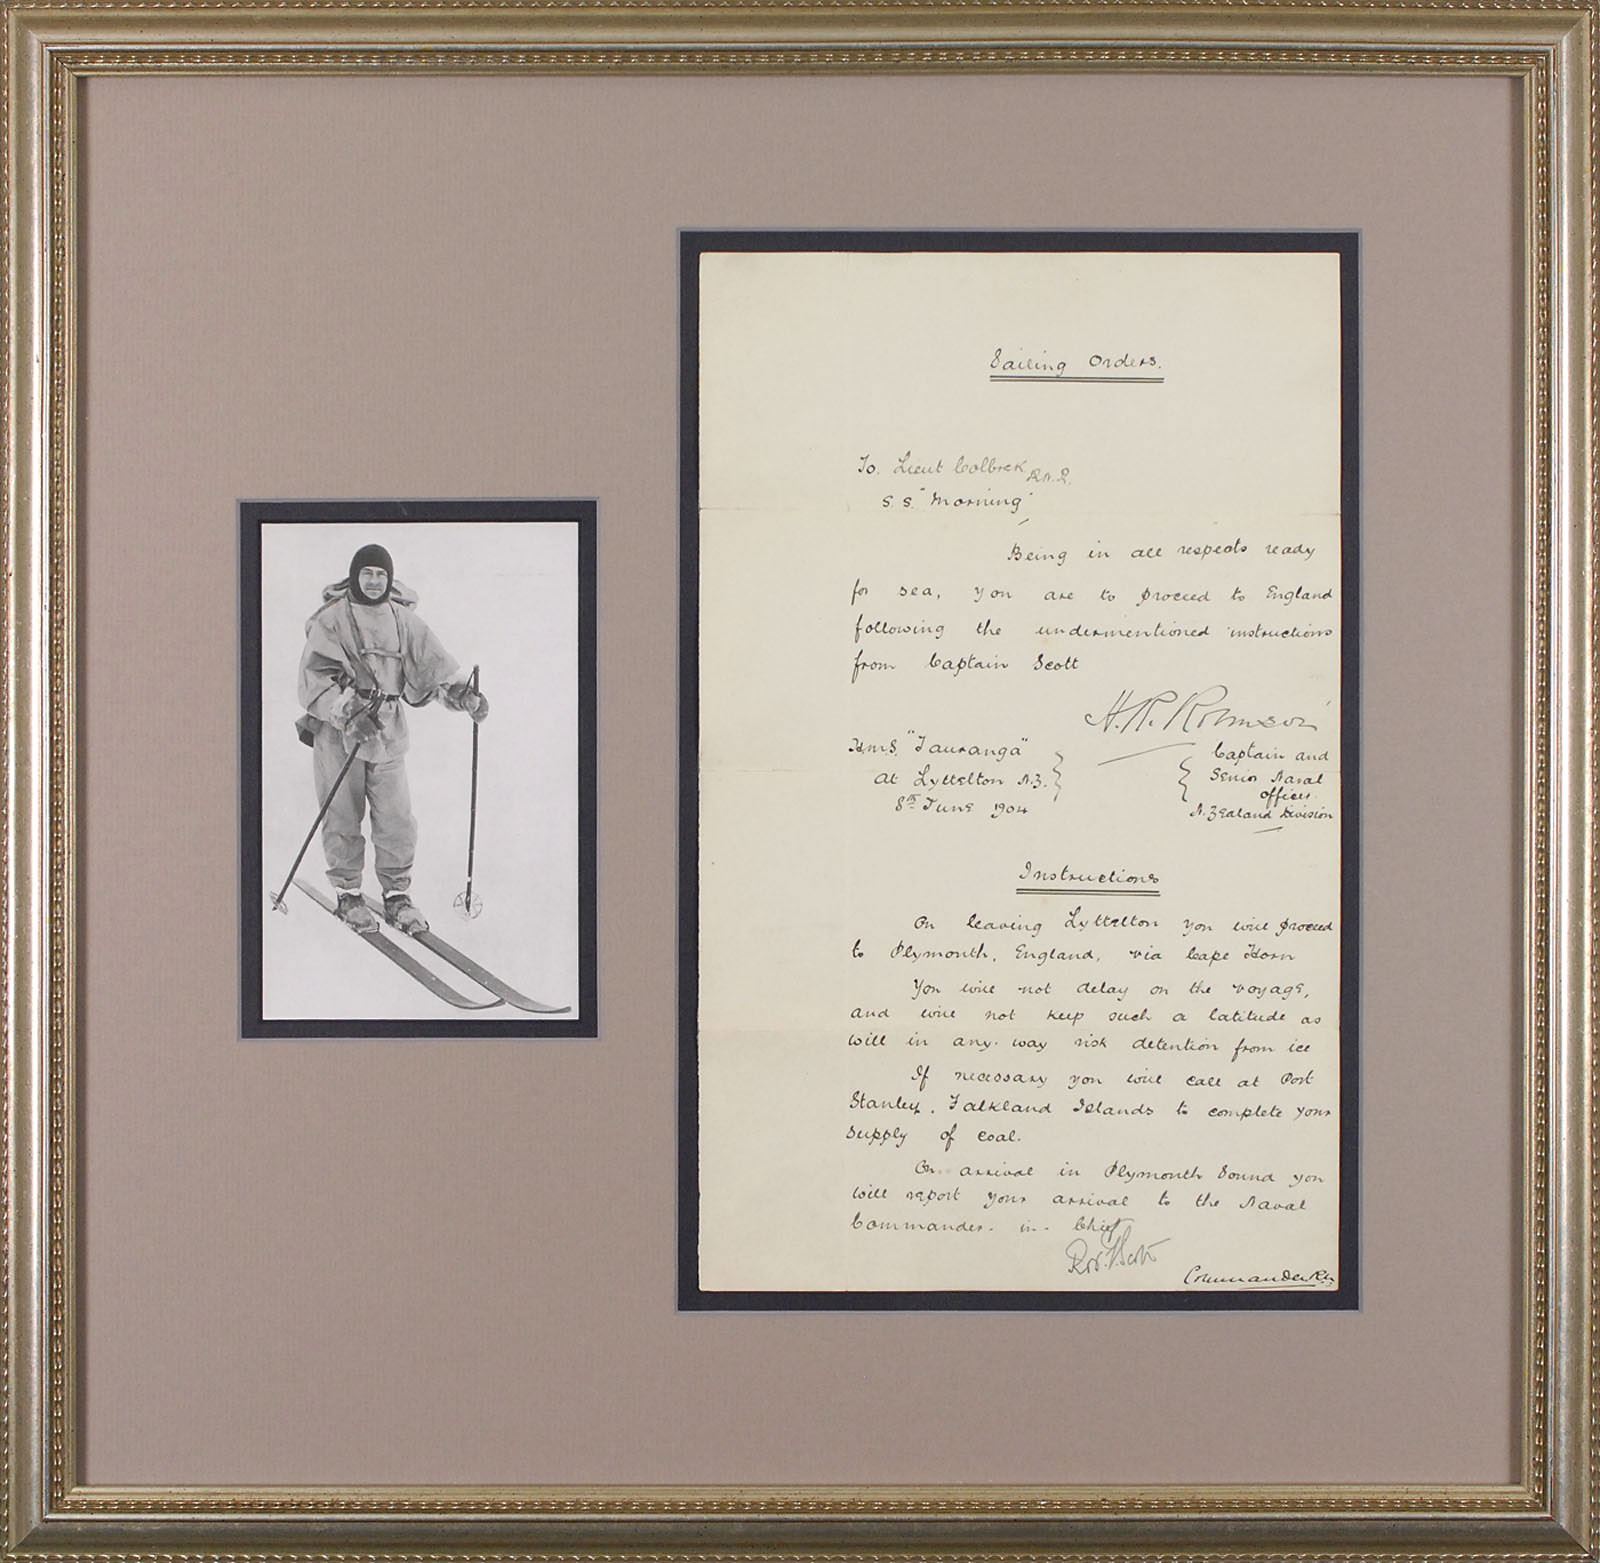 Sailing Orders.
To. Lieut Colbeck R.N.R.
S.S. "Morning"
Being in all respects ready
for sea, you are to proceed to England
following the undermentioned instructions
from Captain Scott
H.R. Robinson
H.M.S. "Tauranga"
at Lyttelton N.Z.
8th June 1904
Captain and
Senior Naval
officer.
N. Zealand Division
Instructions
On leaving Lyttelton you will proceed
to Plymouth, England, via Cape Horn
You will not delay on the voyage,
and will not keep such a latitude as
will in any way risk detention from ice
If necessary you will call at Port
Stanley, Falkland Islands to complete your
supply of coal.
On arrival in Plymouth Sound you
will report your arrival to the Naval
Commander-in-Chief
Rob. F Scott
Commander RN